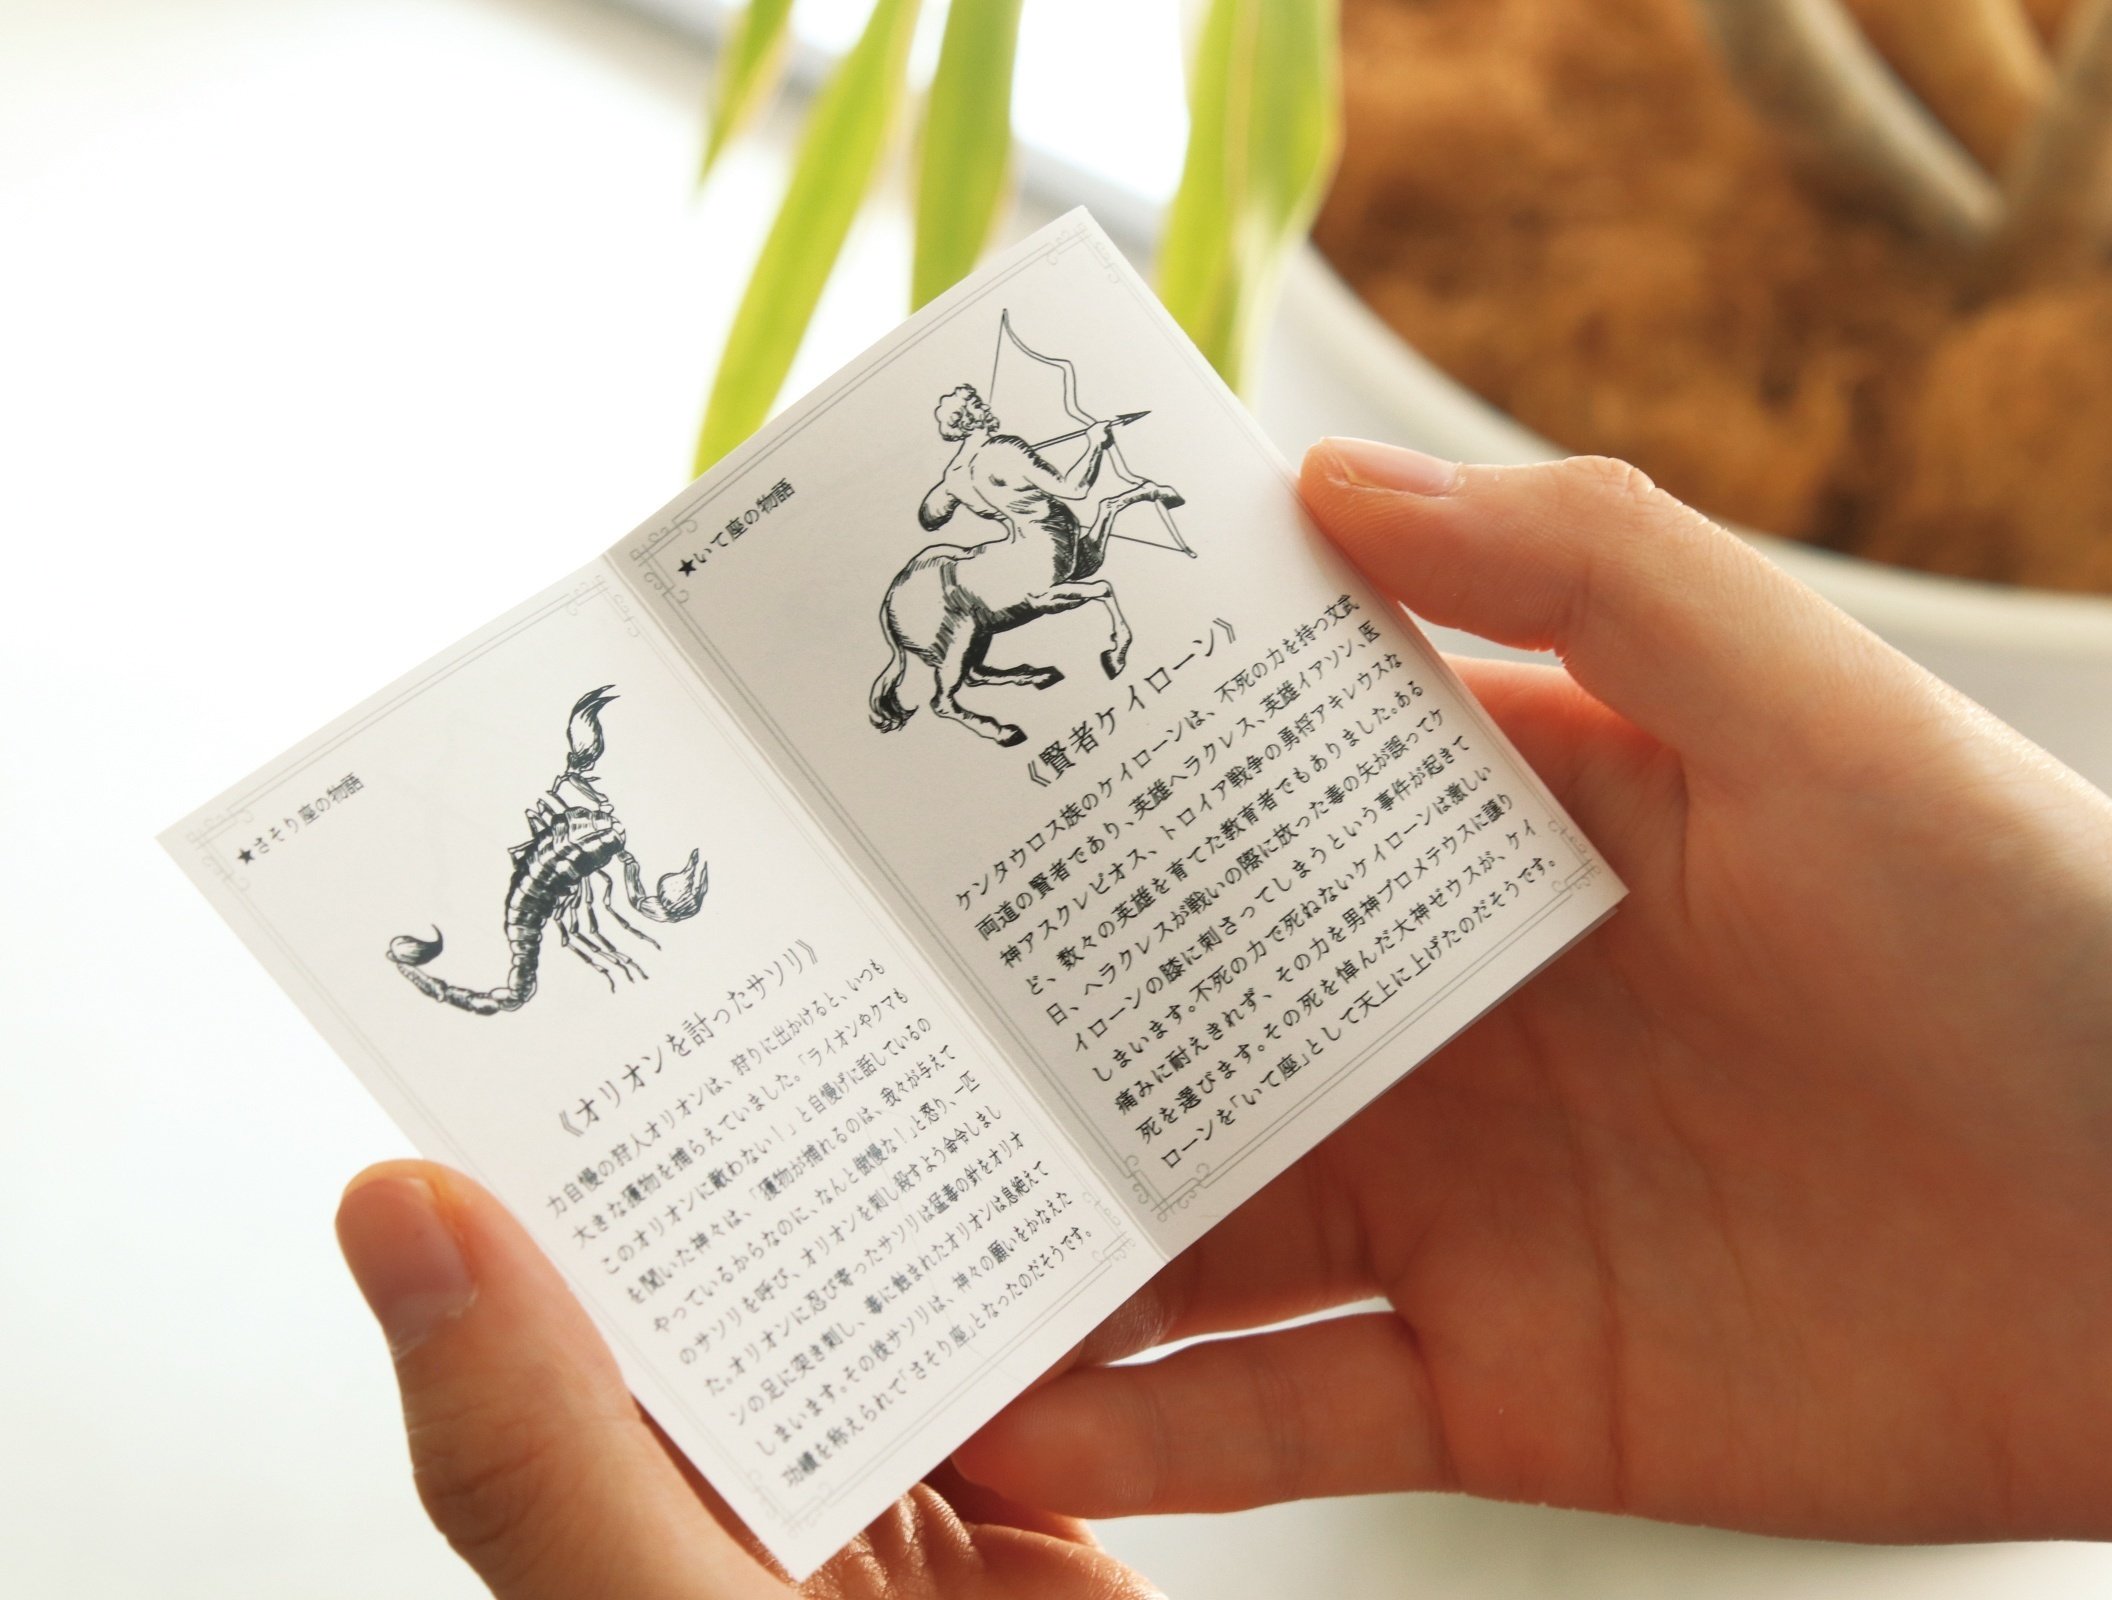 ★さそり座の物語
《オリオンを討ったサソリ》
力自慢の狩人オリオンは、狩りに出かけると、いつも
大きな獲物を捕らえていました。「ライオンやクマも
このオリオンに敵わない！」と自慢げに話しているの
を聞いた神々は、「獲物が捕れるのは、我々が与えて
やっているからなのに、なんと傲慢な！」と怒り、一匹
のサソリを呼び、オリオンを刺し殺すよう命令しまし
た。オリオンに忍び寄ったサソリは猛毒の針をオリオ
ンの足に突き刺し、毒に蝕まれたオリオンは息絶えて
しまいます。その後サソリは、神々の願いをかなえた
功績を称えられて「さそり座」となったのだそうです。
★いて座の物語
《賢者ケイローン》
ケンタウロス族のケイローンは、不死の力を持つ文武
両道の賢者であり、英雄ヘラクレス、英雄イアソン、医
神アスクレピオス、トロイア戦争の勇将アキレウスな
ど、数々の英雄を育てた教育者でもありました。ある
日、ヘラクレスが戦いの際に放った毒の矢が誤ってケ
イローンの膝に刺さってしまうという事件が起きて
しまいます。不死の力で死ねないケイローンは激しい
痛みに耐えきれず、その力を男神プロメテウスに譲り
死を選びます。その死を悼んだ大神ゼウスが、ケイ
ローンを「いて座」として天上に上げたのだそうです。